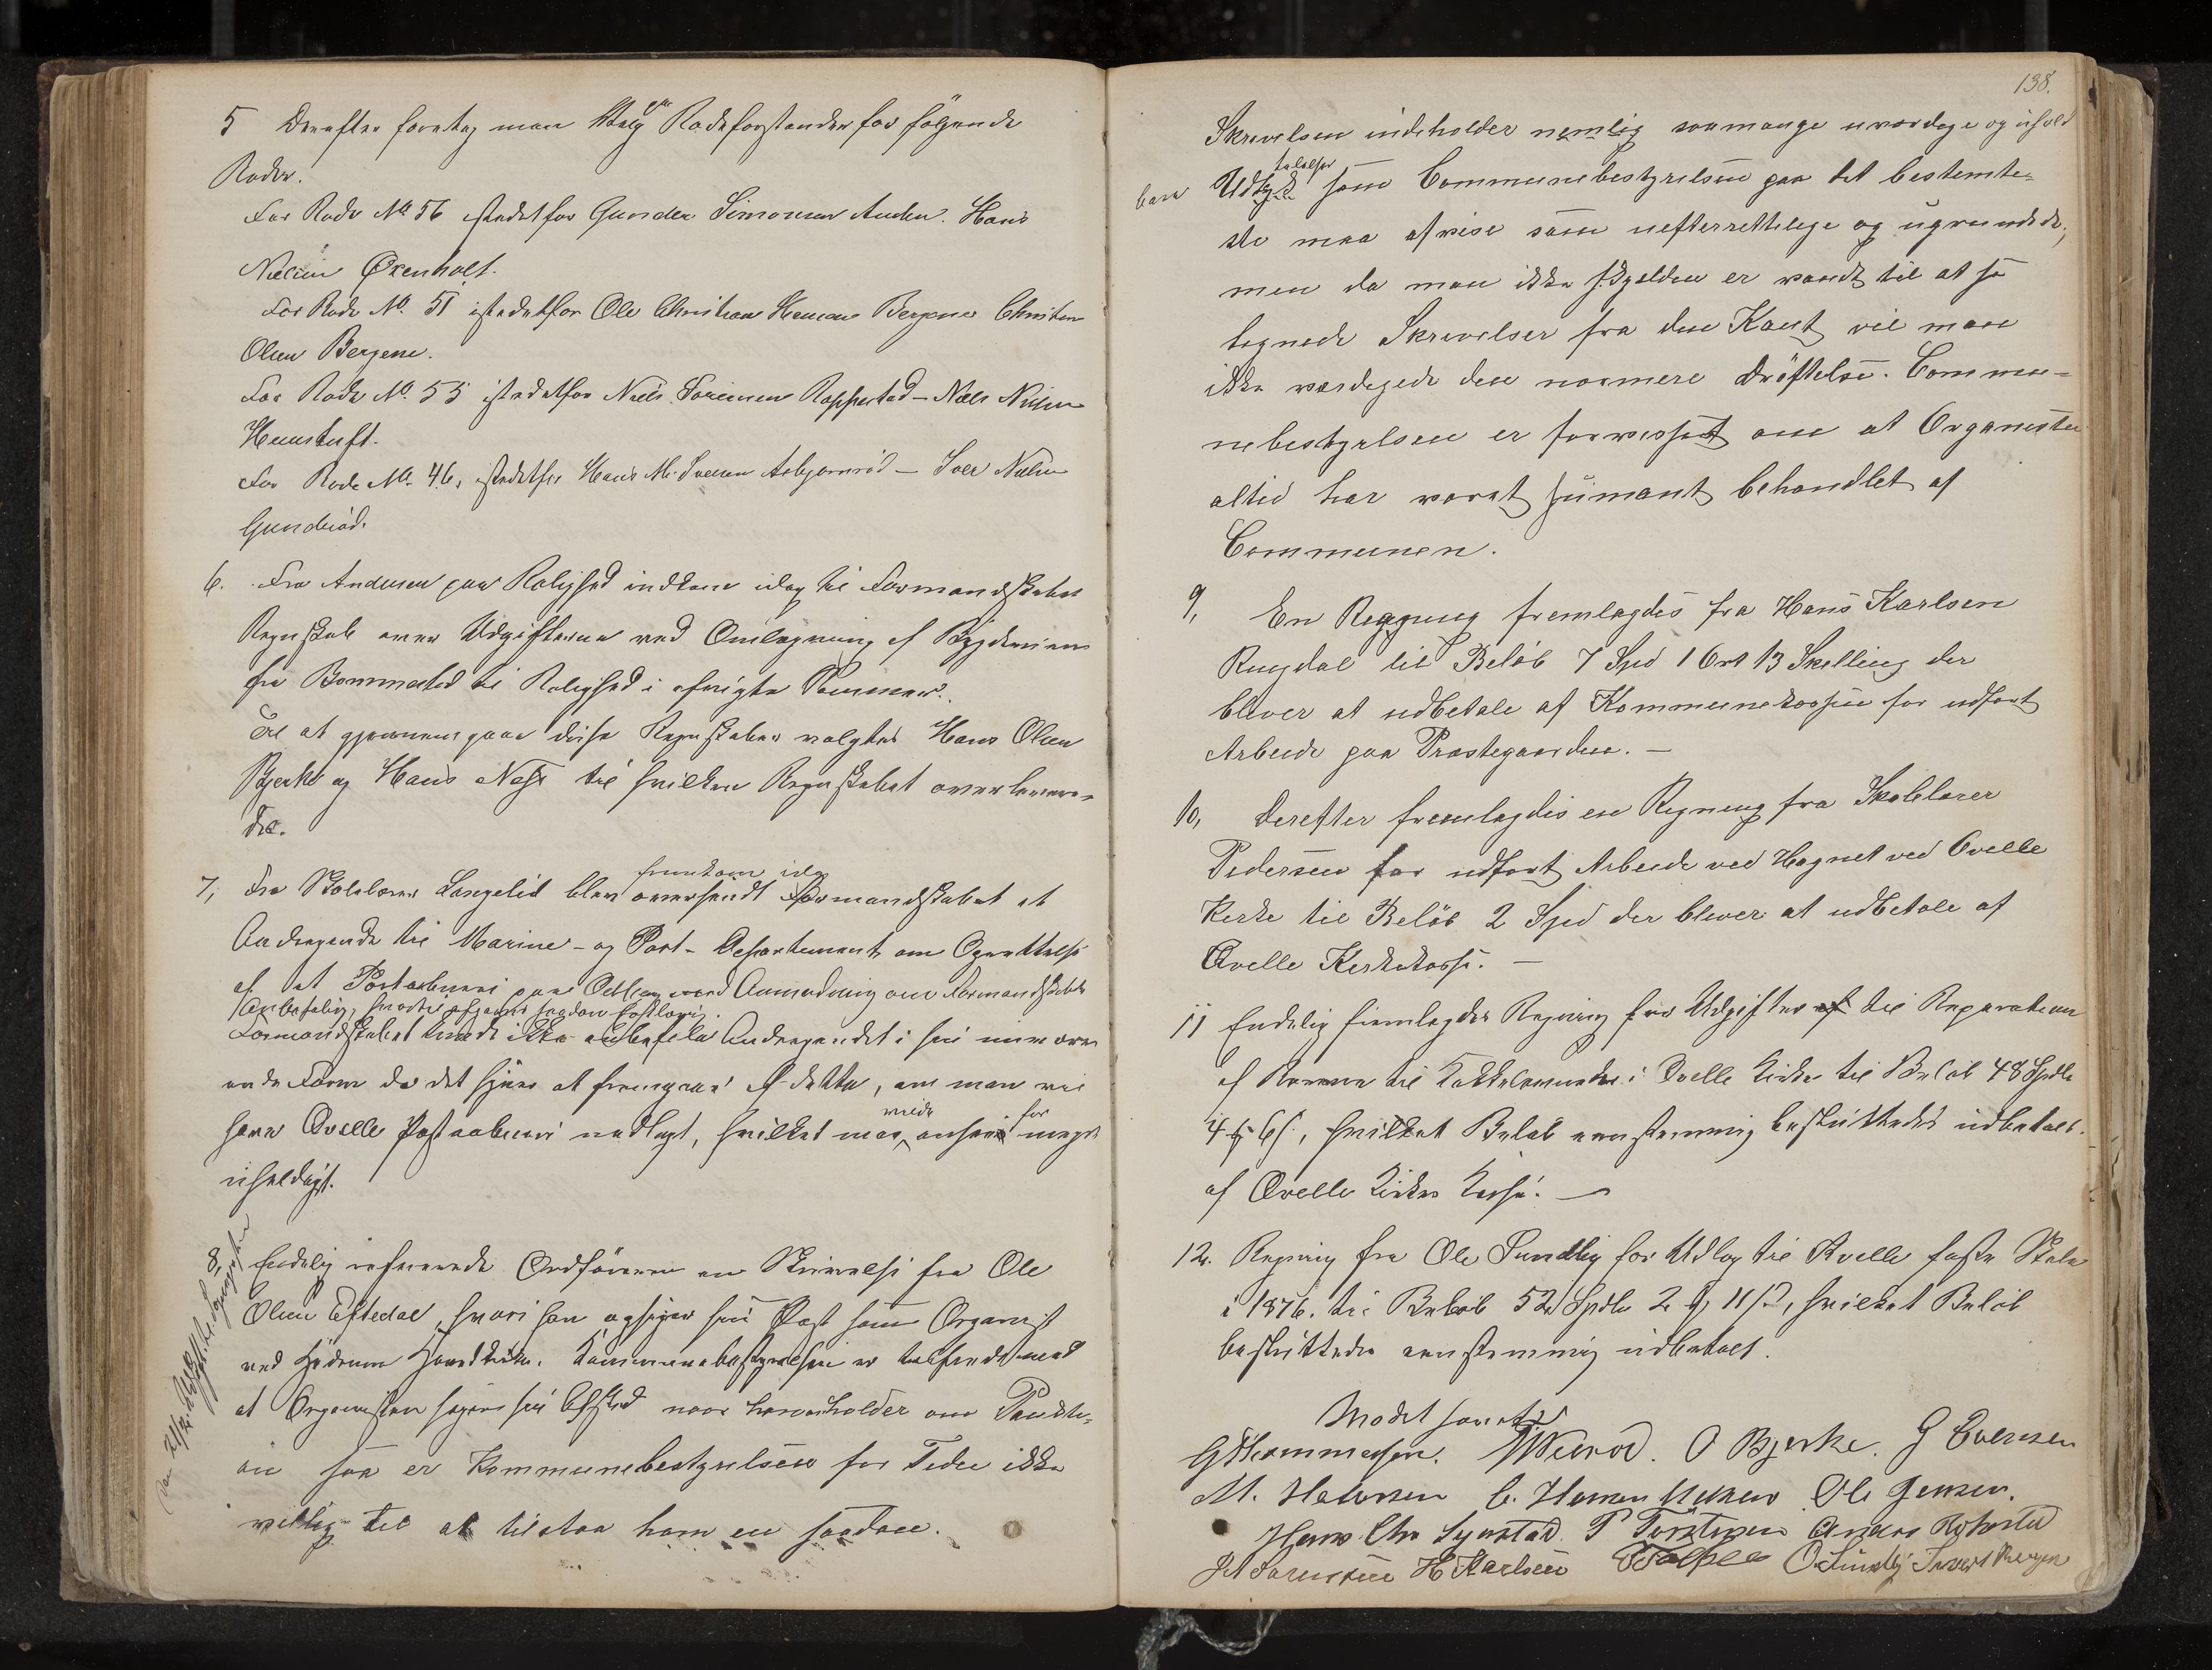 5 Derefter foretog man Valg af Rodeforstander for følgende
Roder.
For Rode No 56 istedetfor Gunder Simonsen Aulen. Hans
Nielsen Øxenholt.
For Rode No. 51 istedetfor Ole Christian Hansen Bergene Christen
Olsen Bergene.
For Rode No. 55 istedetfor Niels Sørensen Rappestad – Niels Nilsen
Hemstuft.
For Rode No. 46, istedetfor Hans M. Iversen Asbjørnrød – Iver Nielsen
Gunderød.
6. Fra Andersen paa Rolighed indkom idag til Formandskabet
Regnskab over Udgifterne ved Omlægning af Bygdeveien
fra Bommestad til Rolighed i afvigte Sommer.
Til at gjennemgaa disse Regnskaber valgtes Hans Olsen
Bjerke og Hans Næss til hvilken Regnskabet overlevere-
des.
7, Fra Skolelærer Langelid blev oversendt Formandskabet et
fremkom idag
Andragende til Marine- og Post-Departementet om Oprettelse
af et Postaabneri paa Odberg med Anmodning om Formandskabets
Anbefaling, hvortil afgaves saadan Erklæring.
Formandskabet kunde ikke anbefale Andragendet i sin nuvær-
ende Form da det synes at fremgaa af dette, om man vil
have Qvelle Postaabneri nedlagt, hvilket man vilde anse for meget
uheldigt.
8, Endelig refererede Ordføreren en Skrivelse fra Ole
Olsen Eftedal, hvori han opsiger sin Post som Organist
ved Hedrum Hovedkirke. Kommunebestyrelsen er tilfreds med
at Organisten søger sin Afsked naar han anholder om Pensi-
on saa er Kommunebestyrelsen for Tiden ikke
villig til at tilstaa ham en saadan.
138.
Skrivelsen indeholder nemlig saamange uværdige og uhold
bare Udtalelser som Communebestyrelsen paa det bestemte-
ste maa afvise som uefterrettelige og ugrundede,
men da man ikke sjelden er vandt til at se
lignede Skrivelser fra den Kant vil man
ikke værdigede den nærmere Drøftelse. Commu-
nebestyrelsen er forvisset om at Organisten
altid har været humant behandlet af
Communen.
9, En Regning fremlagdes fra Hans Karlsen
Rugdal til Beløb 7 Spd 1 Ort 13 Skelling der
bliver at udbetale af Kommunekassen for udført
Arbeide paa Præstegaarden. —
10, Derefter fremlagdes en Regning fra Skolelærer
Pedersen for udført Arbeide ved Hegnet ved Qvelle
Kerke til Beløb 2 Spd der bliver at udbetale af
Qvelle Kerkekasse. —
11 Endelig fremlagdes Regning for Udgifter til Reparationer
af Kvelle Kirke til Beløb 48 Spdlr
4 ₰ 6 s, hvilket Beløb eenstemmig besluttedes udbetalt
af Qvelle Kirkes Kasse. —
12. Regning fra Ole Sundby for Udlæg til Kvelle faste Skole
i 1876. til Beløb 52 Spdlr 2 ₰ 11 s, hvilket Beløb
besluttedes eenstemmig udbetalt.
Mødet hævet
G Thommesen. O Bjerke. G Evensen
M. Halvorsen C. Hansen Ole Jensen.
Hans Chr Lynstad P Torstensen Anders
Sørensen H Karlsen O. Sundby Bergen